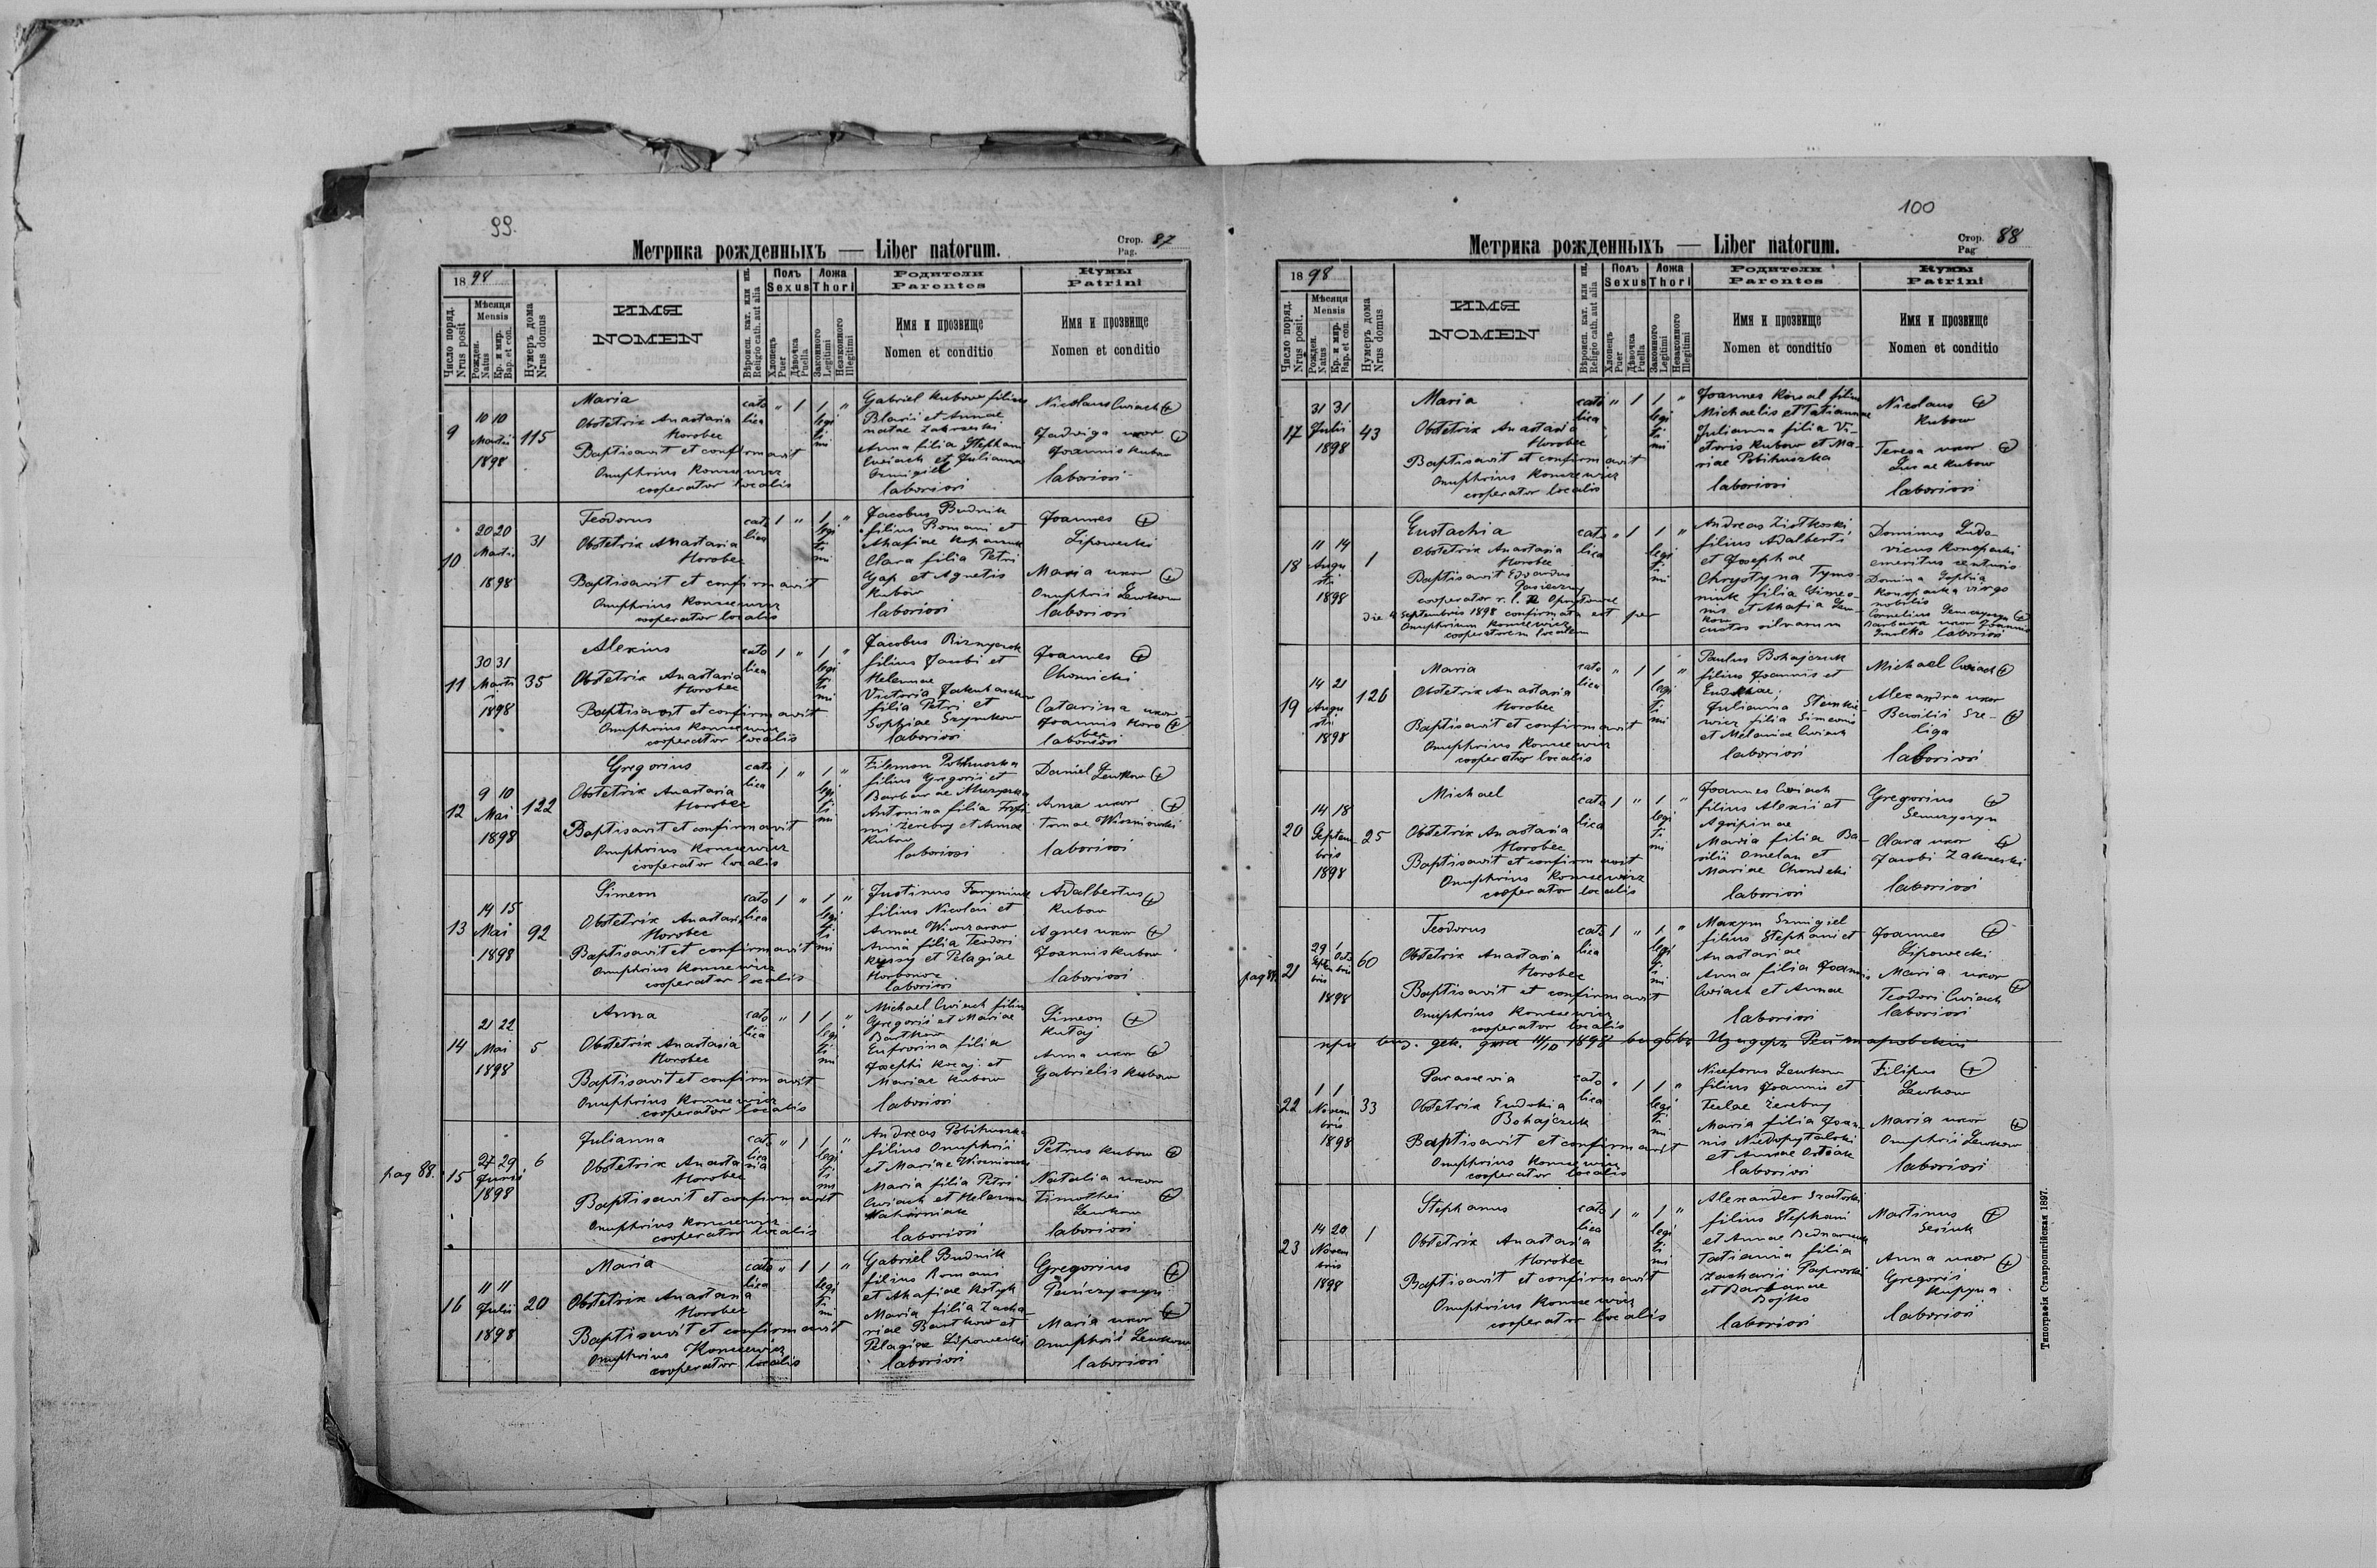 99.
Метрика рожденныхъ — Liber natorum.
Стор. 87
Pag.
1898
Число поряд.
Nrus posit
Мѣсяця
Mensis
Рожден.
Natus
Кр. и мир.
Bap. et con.
Нумеръ дома
Nrus domus
ИМЯ
NOMEN
Вѣроисп. кат. или ин.
Religio cath. aut alia
Полъ
Sexus
Хлопець
Puer
Дѣвочка
Puella
Ложа
Thori
Законного
Legitimi
Незаконного
Illegitimi
Родители
Parentes
Имя и прозвище
Nomen et conditio
Кумы
Patrini
Имя и прозвище
Nomen et conditio
9
10 10
Martii
1898
115
Maria
Obstetrix Anastasia
Horobec
Baptisavit et confirmavit
Onuphrius
cooperator localis
catolica
" 1 1 "
legitimi
Gabriel Kubow filius
et Annae
natae Zakrzeski
Anna filia Stephani
Cwiach et Julianna
Szmigiel
laboriosi
Nicolaus Cwiach
Jadwiga uxor
Joannis Kubow
laboriosi
10
20 20
Martii
1898
31
Teodorus
Obstetrix Anastasia
Horobec
Baptisavit et confirmavit
Onuphrius
cooperator localis
catolica
1 " 1 "
legitimi
Jacobus Budnik
filius Romani et
Ahafiae
Clara filia Petri
Gap et Agnetis
Kubow
laboriosi
Joannes
Lipowecki
Maria uxor
Onuphrii Lewkow
laboriosi
11
30 31
Martii
1898
35
Alexius
Obstetrix Anastasia
Horobec
Baptisavit et confirmavit
Onuphrius
cooperator localis
catolica
1 " 1 "
legitimi
Jacobus
filius Jacobi et
Helennae
Victoria
filia Petri et
Sophiae Szymkow
laboriosi
Joannes
Chomicki
Catarina uxor
Joannis Horobec
laboriosi
12
9 10
Mai
1898
122
Gregorius
Obstetrix Anastasia
Horobec
Baptisavit et confirmavit
Onuphrius
cooperator localis
catolica
1 " 1 "
legitimi
Filemon Pobihuszka
filius Gregorii et
Barbarae
Antonina filia
Zerebny et Annae
Kubow
laboriosi
Daniel Lewkow
Anna uxor
Tomae Wiszniowski
laboriosi
13
14 15
Mai
1898
92
Simeon
Obstetrix Anastasia
Horobec
Baptisavit et confirmavit
Onuphrius
cooperator localis
catolica
1 " 1 "
legitimi
Justinus
filius Nicolai et
Annae
Anna filia Teodori
et Pelagiae
laboriosi
Adalbertus
Kubow
Agnes uxor
Joannis Kubow
laboriosi
14
21 22
Mai
1898
5
Anna
Obstetrix Anastasia
Horobec
Baptisavit et confirmavit
Onuphrius
cooperator localis
catolica
" 1 1 "
legitimi
Michael Cwiach filius
Gregorii et Mariae
Bartkow
Eufrosina filia
Josephi et
Mariae Kubow
laboriosi
Simeon
Anna uxor
Gabrielis Kubow
pag 88.
15
27 29
Junii
1898
6
Julianna
Obstetrix Anastasia
Horobec
Baptisavit et confirmavit
Onuphrius
cooperator localis
catolica
" 1 1 "
legitimi
Andreas Pobihuszka
filius Onuphrii
et Mariae Wiszniowski
Maria filia Petri
Cwiach et Helenna
laboriosi
Petrus Kubow
Natalia uxor
Timothei
Lewkow
laboriosi
16
11 11
Julii
1898
20
Maria
Obstetrix Anastasia
Horobec
Baptisavit et confirmavit
Onuphrius
cooperator localis
catolica
" 1 1 "
legitimi
Gabriel Budnik
filius Romani
et Ahafiae
Maria filia Zachariae
Bartkow et
Pelagiae Lipowecki
laboriosi
Gregorius
Maria uxor
Onuphrii Lewkow
laboriosi
100
Метрика рожденныхъ — Liber natorum.
Стор. 88
Pag
1898
Число поряд.
Nrus posit.
Мѣсяця
Mensis
Рожден.
Natus
Кр. и мир.
Bap. et con.
Нумеръ дома
Nrus domus
ИМЯ
NOMEN
Вѣроисп. кат. или ин.
Religio cath. aut alia
Полъ
Sexus
Хлопець
Puer
Дѣвочка
Puella
Ложа
Thori
Законного
Legitimi
Незаконного
Illegitimi
Родители
Parentes
Имя и прозвище
Nomen et conditio
Кумы
Patrini
Имя и прозвище
Nomen et conditio
17
31 31
Julii
1898
43
Maria
Obstetrix Anastasia
Horobec
Baptisavit et confirmavit
Onuphrius
cooperator localis
catolica
" 1 1 "
legitimi
Joannes filius
Michaelis et Tatiannae
Julianna filia Victoris
Kubow et Mariae
Pobihuszka
laboriosi
Nicolaus
Kubow
Teresa uxor
Lucae Kubow
laboriosi
18
11 14
Augusti
1898
1
Eustachia
Obstetrix Anastasia
Horobec
Baptisavit Edvardus
cooperator r. l.
die 4 Septembris 1898 confirmata est per
Onuphrium
cooperatorem localem
catolica
" 1 1 "
legitimi
Andreas
filius Adalberti
et Josephae
Chrystyna
filia Simeonis
et Ahafia
custos silvarum
Dominus Ludovicus
Konopacki
emeritus
Domina Sophia
Konopacka virgo
nobilis
Cornelius
Barbara uxor Joannis
laboriosi
19
14 21
Augusti
1898
126
Maria
Obstetrix Anastasia
Horobec
Baptisavit et confirmavit
Onuphrius
cooperator localis
catolica
" 1 1 "
legitimi
Paulus Bohajczuk
filius Joannis et
Eudokiae;
Julianna
filia Simeonis
et Melaniae Cwiach
laboriosi
Michael Cwiach
Alexandra uxor
Basilii Szeliga
laboriosi
20
14 18
Septembris
1898
25
Michael
Obstetrix Anastasia
Horobec
Baptisavit et confirmavit
Onuphrius
cooperator localis
catolica
1 " 1 "
legitimi
Joannes Cwiach
filius Alexii et
Agripinae
Maria filia Basilii
Omelan et
Mariae
laboriosi
Gregorius
Clara uxor
Jacobi Zakrzeski
laboriosi
pag 89.
21
29 1
Septembris Octobris
1898
60
Teodorus
Obstetrix Anastasia
Horobec
Baptisavit et confirmavit
Onuphrius
cooperator localis
catolica
1 " 1 "
legitimi
Maxym Szmigiel
filius Stephani et
Anastasiae
Anna filia Joannis
Cwiach et Annae
laboriosi
Joannes
Lipowecki
Maria uxor
Teodori Cwiach
laboriosi
при виз. дек. дня 11/10 1898
22
1 1
Novembris
1898
33
Parascevia
Obstetrix Eudokia
Bohajczuk
Baptisavit et confirmavit
Onuphrius
cooperator localis
catolica
" 1 1 "
legitimi
Niceforus Lewkow
filius Joannis et
Teclae Zerebny
Maria filia Joannis
et Annae
laboriosi
Filipus
Lewkow
Maria uxor
Onuphrii Lewkow
laboriosi
23
14 20
Novembris
1898
1
Stephanus
Obstetrix Anastasia
Horobec
Baptisavit et confirmavit
Onuphrius
cooperator localis
catolica
1 " 1 "
legitimi
Alexander
filius Stephani
et Annae Bednarczuk
Tatianna filia
Zacharii
et Barbarae
Bojko
laboriosi
Martinus
Anna uxor
Gregorii
laboriosi
Типографія Ставропигійская 1897.